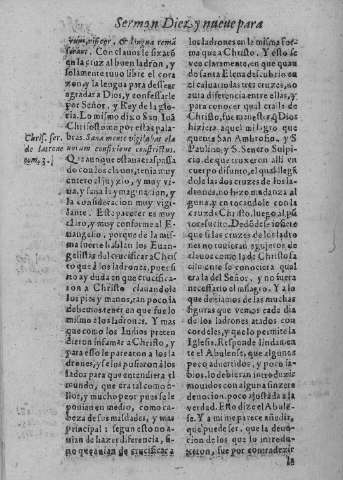 Sermon Diez y nueve para
& lengua remã
serant. Con clauos se fixarõ
en la cruz al buen ladron, y
solamente tuuo libre el cora
çon, y la lengua para dessear
agradar a Dios, y confessarle
por Señor, y Rey de la glo-
ria. Lo mismo dixo San Iuã
Chrisostomo por estas pala-
bras. Sane mente vigilabat ela
de latrone
tom. 3.
Qꝫ aunque estaua traspassa
do con los clauos, tenia muy
entero el juyzio, y muy vi-
ua, y sana la ymaginacion, y
la consideracion muy vigi-
lante. Este parecer es muy
claro, y muy conforme al E-
uangelio, porque de la mis-
ma suerte hablan los Euan-
gelistas del crucificar a Chris
to que a los ladrones, pues si
no ay duda en que crucifica-
ron a Christo clauandole
los pies y manos, tan poco la
deuemos tener en que fue lo
mismo a los ladrones. Y mas
que como los Iudios preten
dieron infamar a Christo, y
para esso le parearon a los la
drones, y se los pusieron a los
lados para que entendiera el
mundo, que era tal como e-
llos, y mucho peor pues le
ponian en medio, como ca-
beza de sus maldades, y mas
principal: segun esto no a-
uian de hazer diferencia, si-
no que auian de crucificar a
los ladrones en la misma for-
ma que a Christo. Y esto se
vee claramente, en que quan
do santa Elena descubrio en
el caluario las tres cruzes, no
auia diferencia entre ellas, y
para conocer qual era la de
Christo, fue menester q̃ Dios
hiziera aquel milagro que
cuentan San Ambrosio, y S.
Paulino, y S. Seuero Sulpi-
cio, de que truxeron alli en
cuerpo difunto, el qual llegã
dole a las dos cruzes de los la-
drones, no hizo mudança al
guna, y en tocandole con la
cruz de Christo, luego al pũ
to resucitò. Dedõde se infiere
que si las cruzes de los ladro
nes no tuuieran agujeros de
clauos como la de Christo fa
cilmente se conociera qual
era la del Señor, y no fuera
necessario el milagro. Y a lo
que dezimos de las muchas
figuras que vemos cada dia
de los ladrones atados con
cordeles, y que lo permite la
Iglesia. Responde lindamen
te el Abulense, que algunos
poco aduertidos, y poco sa-
bios, lo deuieran introduzir
mouidos con alguna sinzera
deuocion, poco ajustada a la
verdad. Esto dize el Abulẽ-
se. Y a mi me parece añadir,
que puede ser, que la deuo-
cion de los que lo introdu-
xeron, fue por contradezir